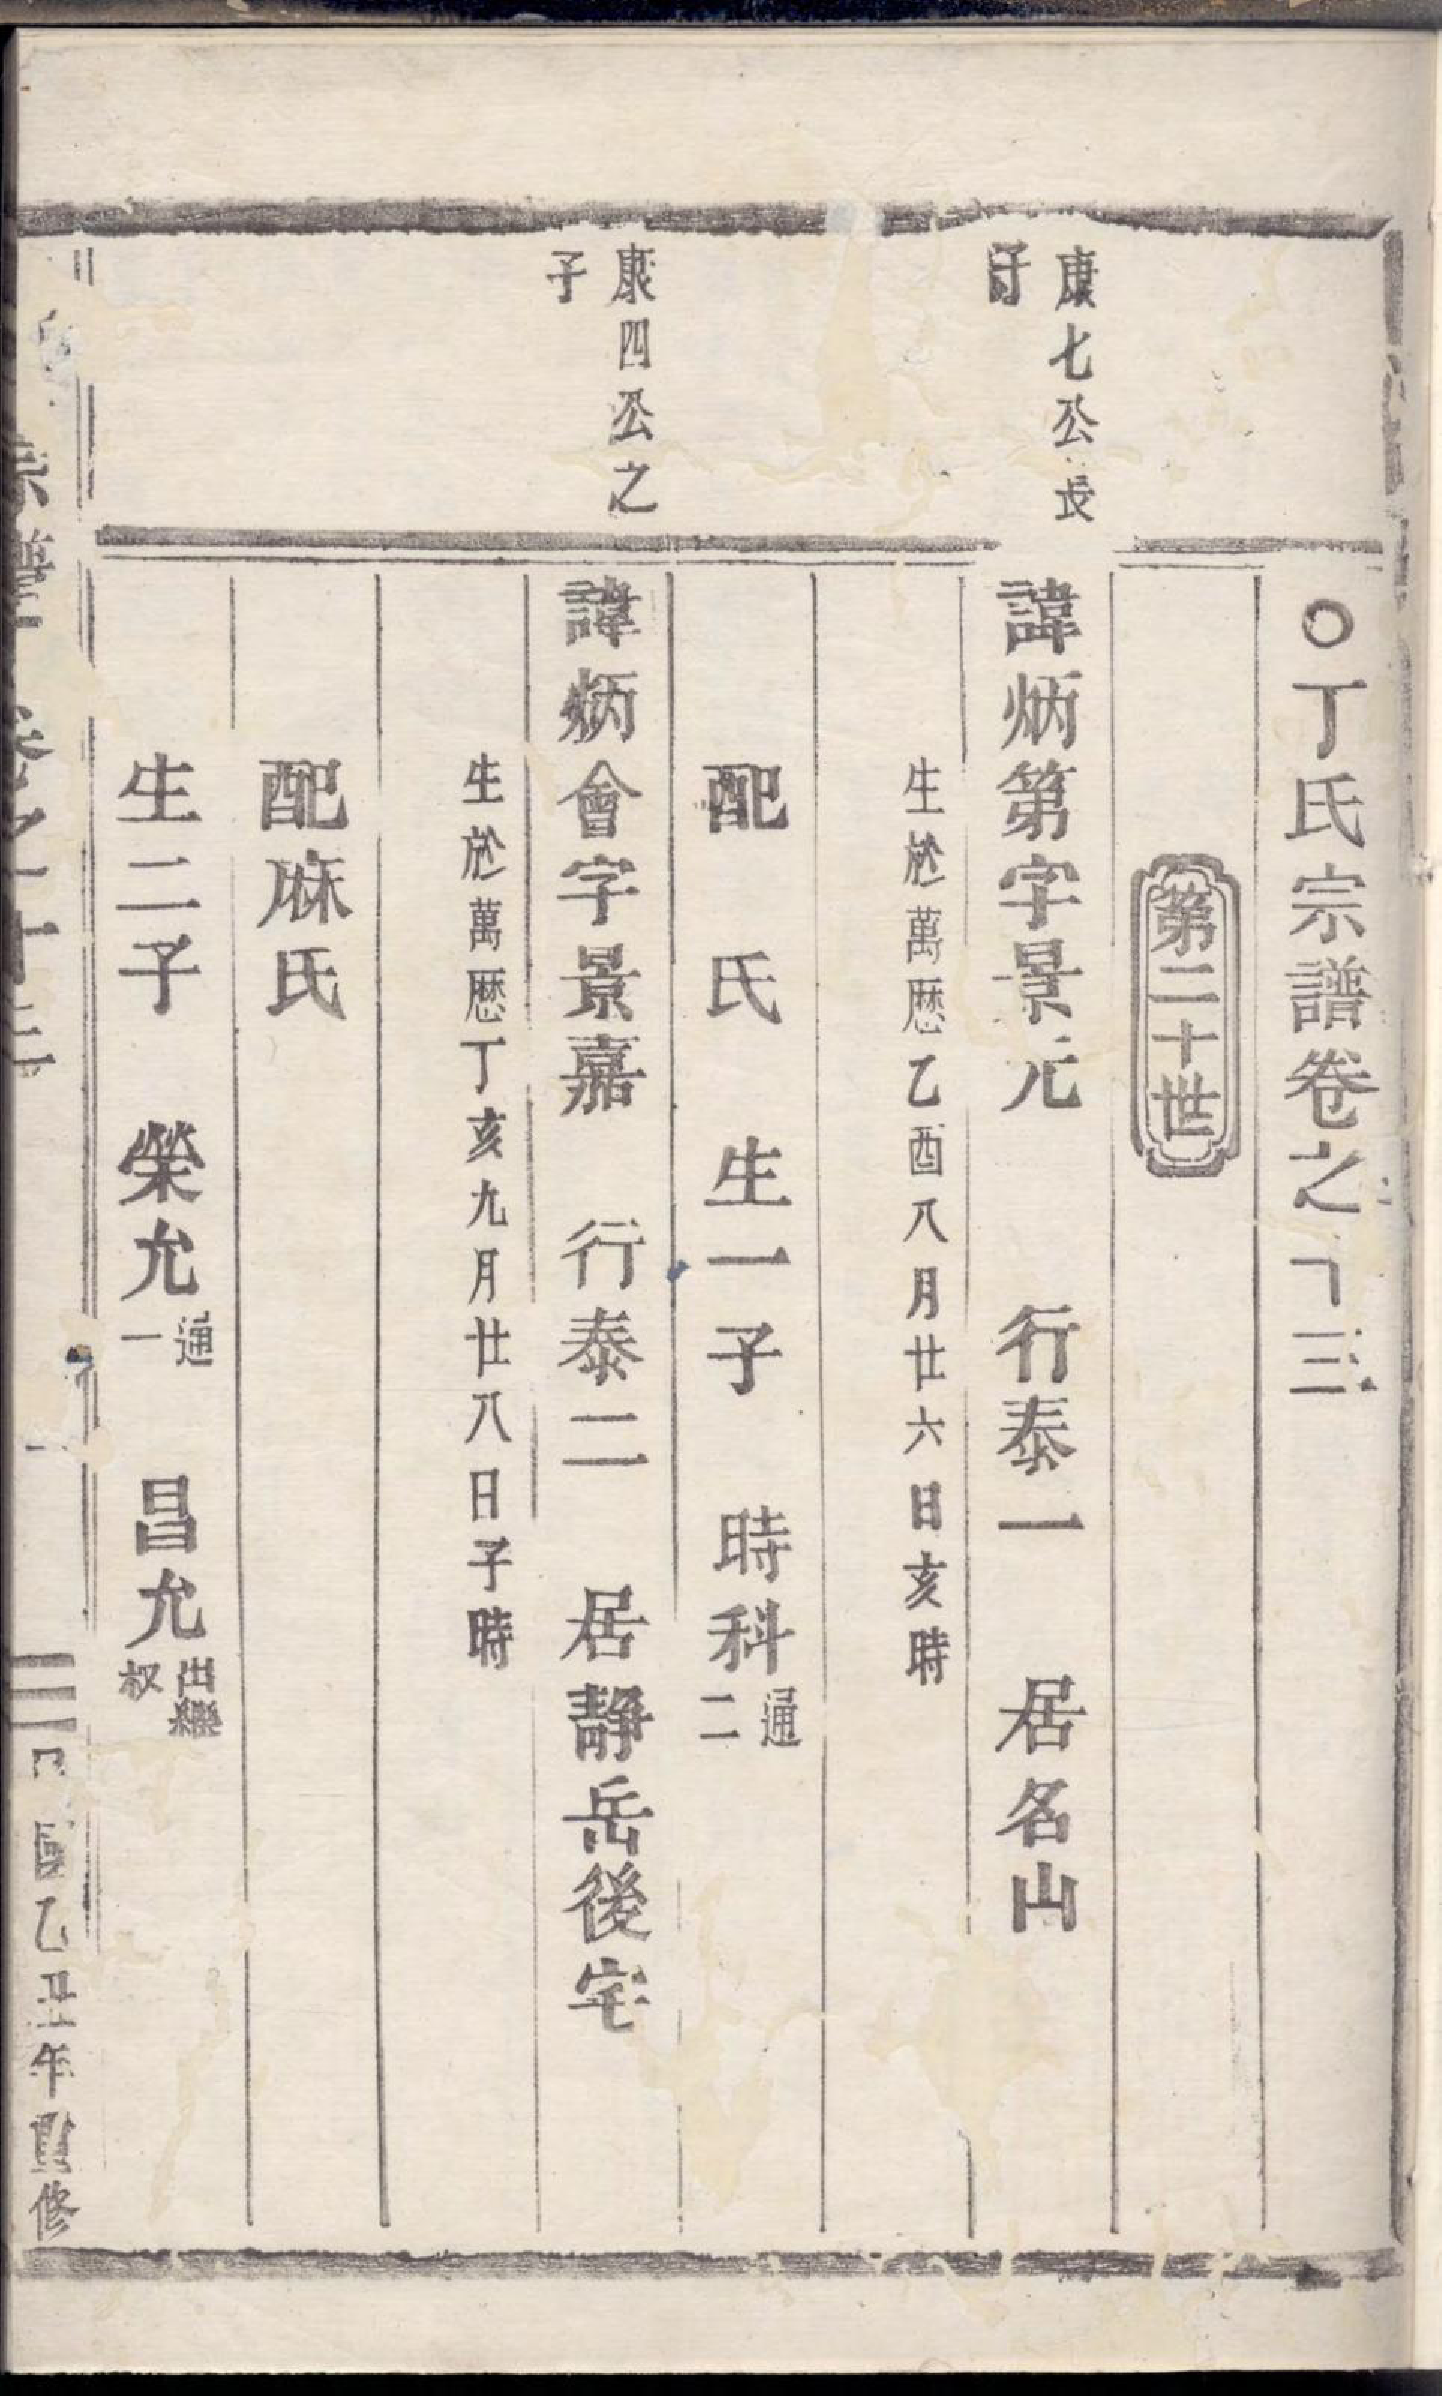 〇丁氏宗譜卷之十三
第二十世
康七公長
子
諱炳第字景元 行泰一 居名山
生於萬厯乙酉八月廿六日亥時
配 氏 生一子 時科通二
康四公之
子
諱炳會字景嘉 行泰二 居靜岳後宅
生於萬厯丁亥九月廿八日子時
配麻氏
生二子 榮允通一 昌允出繼叔
宗譜 卷之十三 一 民國乙丑年重修